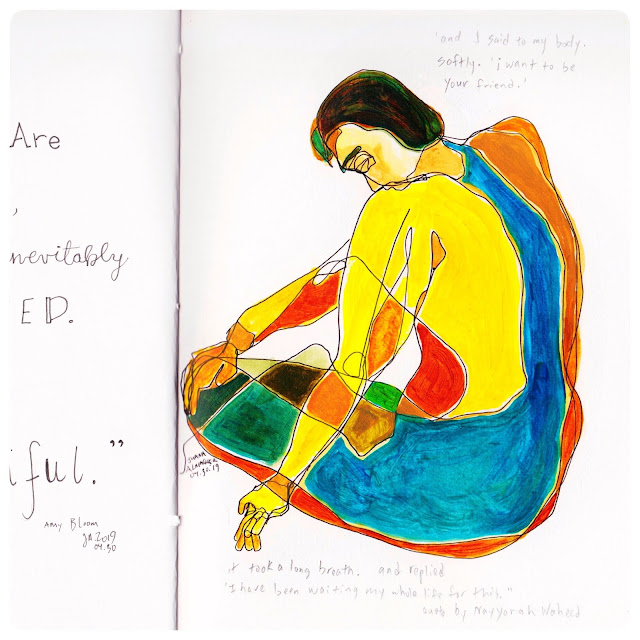 Are
,
nevitably
ED.
iful."
Amy Bloom
JA.2019
04.30
'and I said to my body.
softly. 'i want to be
your friend.'
04.30.19
it took a long breath. and replied
'I have been waiting my whole life for this."
by Nayyirah Waheed